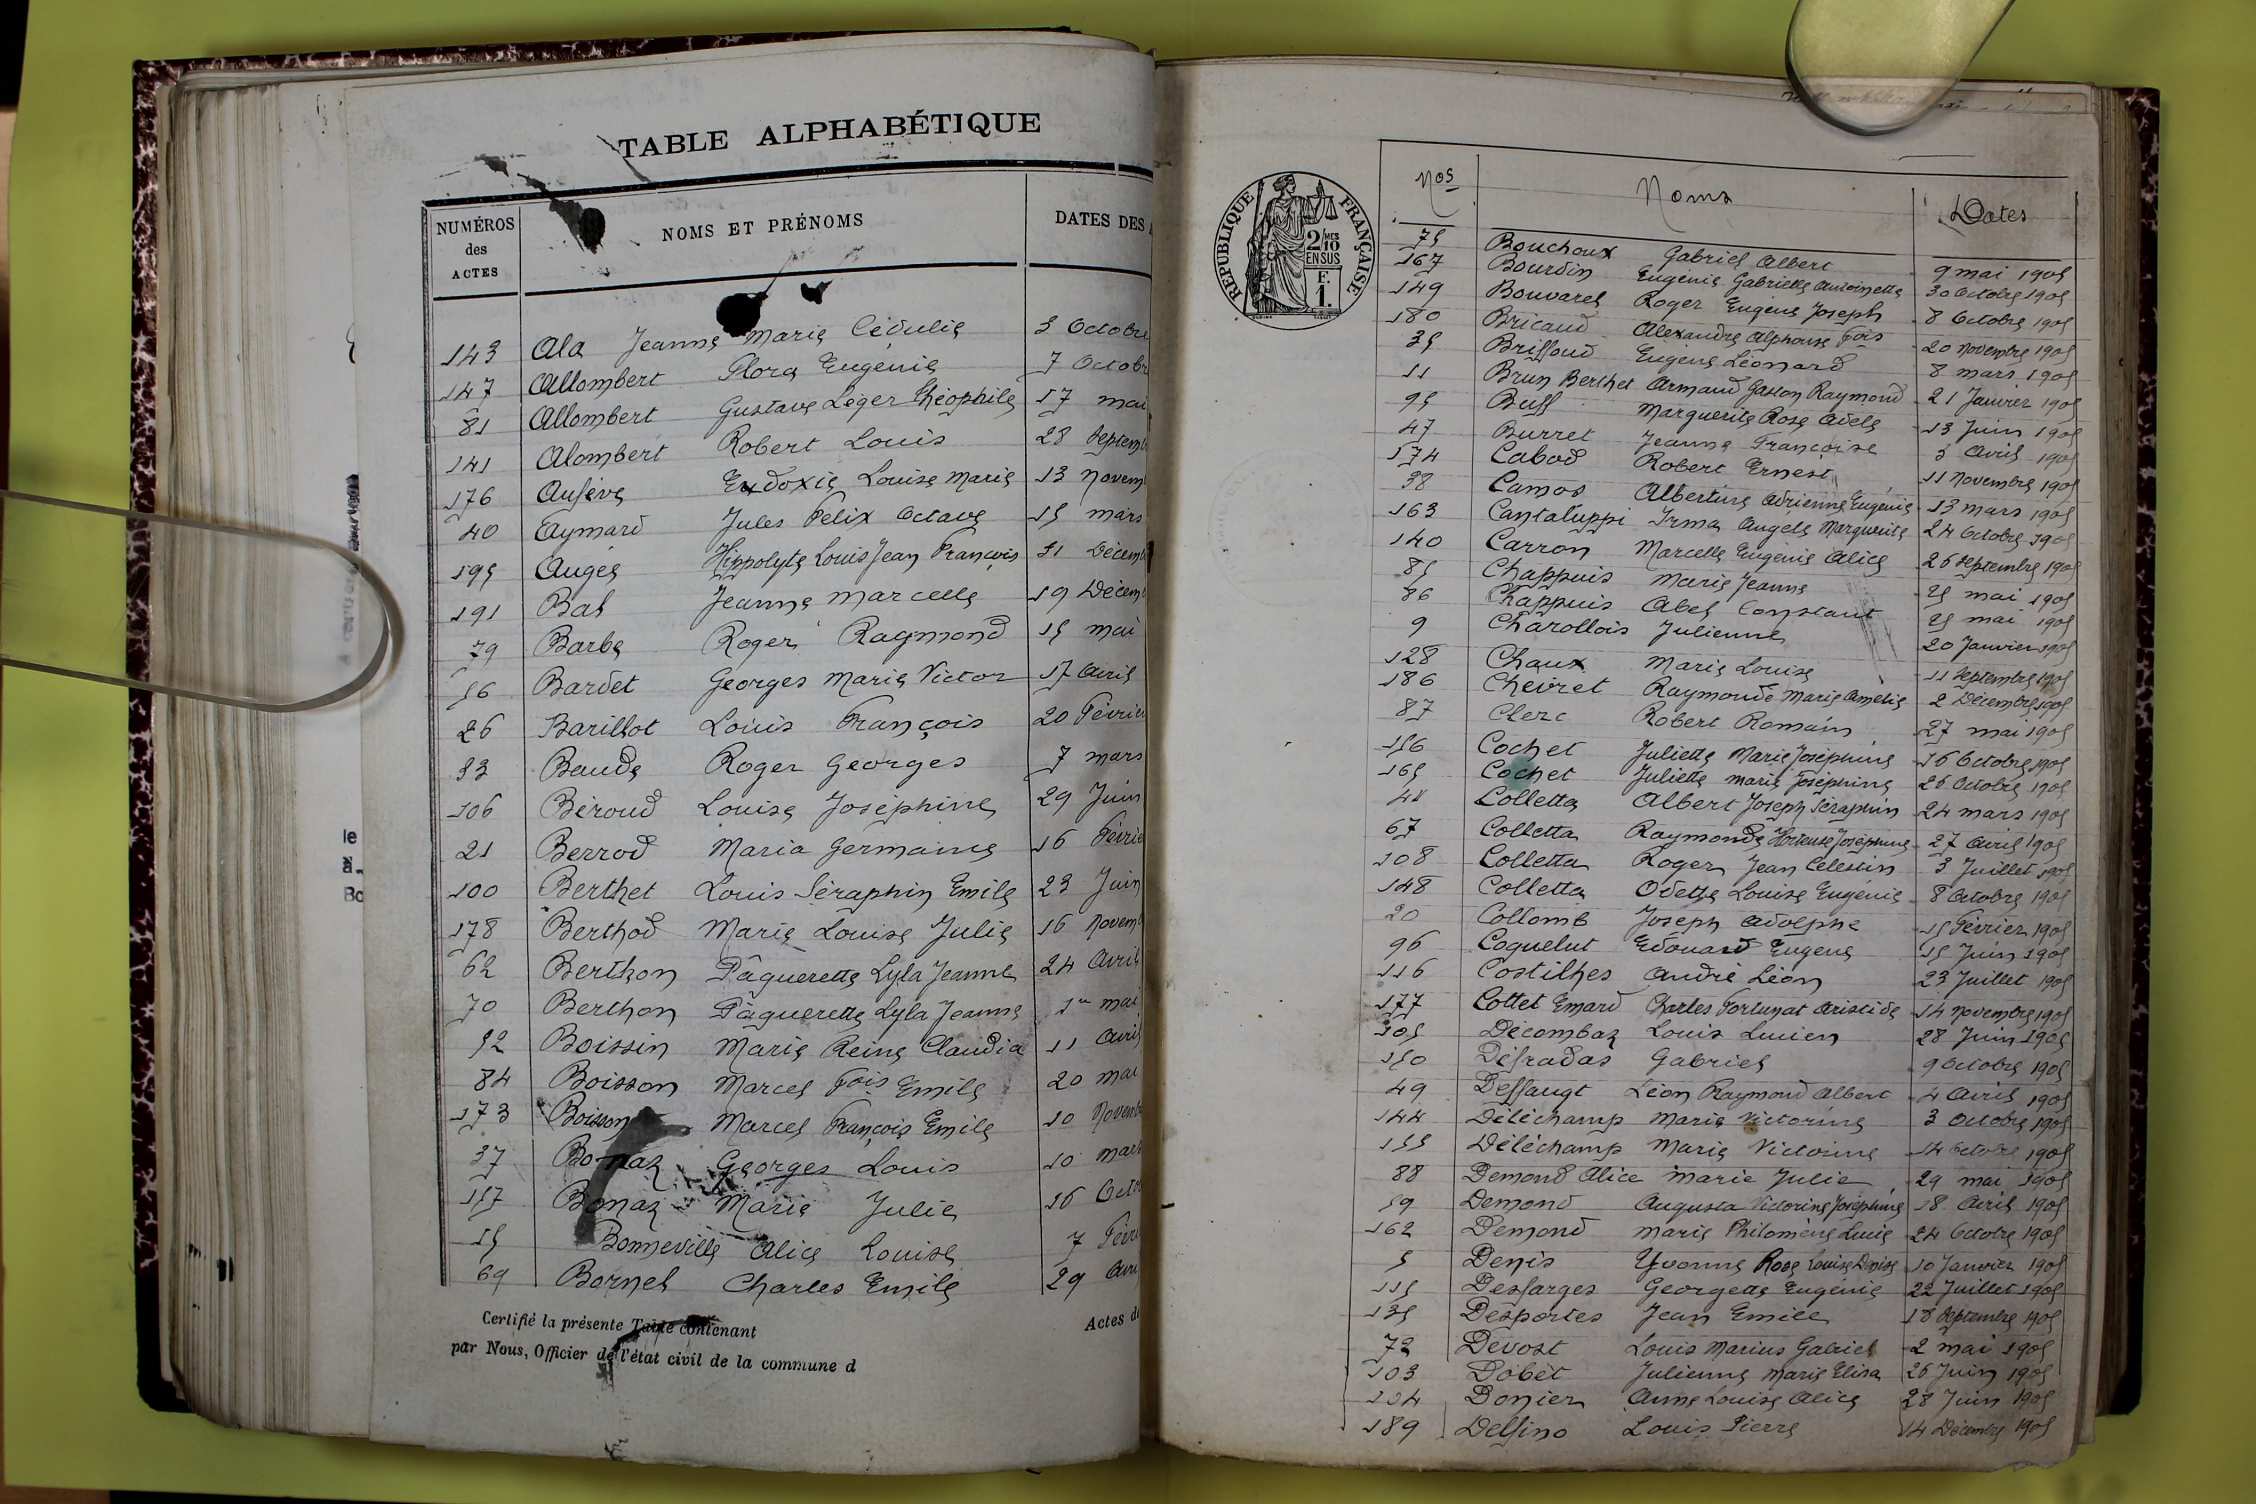 TABLE ALPHABÉTIQUE
NUMÉROS des ACTES NOMS ET PRÉNOMS DATES DES
143 Ala Jeanne Marie Cédulie 3 Octobre
147 Allombert Flora Eugénie 7 Octobr
81 Allombert Gustave Léger Théophile 17 mai
141 Alombert Robert Louis 28 Septem
176 Ausève Eudoxie Louise Marie 13 Novem
40 Aymard Jules Félix Octave 15 mars
195 Augée Hippolyte Louis Jean François 31 Décem
191 Bal Jeanne Marcelle 19 Décem
79 Barbe Roger Raymond 15 mai
56 Bardet Georges Marie Victor 17 Avril
26 Barillot Louis François 20 Févrie
33 Baude Roger Georges 7 mars
106 Béroud Louise Joséphine 29 Juin
21 Berrod Maria Germaine 16 Févrie
100 Berthet Louis Séraphin Emile 23 Juin
178 Berthod Marie Louise Julie 16 Novem
62 Berthon Pâquerette Lyla Jeanne 24 Avril
70 Berthon Pâquerette Lyla Jeanne 1er mai
52 Boissin Marie Reine Claudia 11 Avril
84 Boisson Marcel Fois Emile 20 mai
173 Boisson Marcel François Emile 10 Novemb
37 Bonaz Georges Louis 10 mars
157 Bonaz Marie Julie 16 Octo
15 Bonneville Alice Louise 7 Févri
69 Bornel Charles Emile 29 Avri
Certifié la présente Table contenant Actes d
par Nous, Officier de l'état civil de la commune d
le
Bo
RÉPUBLIQUE FRANÇAISE
2/10 MES
EN SUS
F.
1.
Nos Noms Dates
75 Bouchoux Gabriel Albert 9 mai 1905
167 Bourdin Eugénie Gabrielle Antoinette 30 Octobre 1905
149 Bouvarel Roger Eugène Joseph 8 Octobre 1905
180 Bricaud Alexandre Alphonse Fois 20 Novembre 1905
35 Briffoud Eugène Léonard 8 mars 1905
11 Brun Berthet Armand Gaston Raymond 21 Janvier 1905
95 Buff Marguerite Rose Adèle 13 Juin 1905
47 Burret Jeanne Françoise 3 Avril 1905
174 Cabod Robert Ernest 11 Novembre 1905
38 Camos Albertine Adrienne Eugénie 13 mars 1905
163 Cantaluppi Irma Angèle Marguerite 24 Octobre 1905
140 Carron Marcelle Eugénie Alice 26 Septembre 1905
85 Chappuis Marie Jeanne 25 mai 1905
86 Chappuis Abel Constant 25 mai 1905
9 Charollois Julienne 20 Janvier 1905
128 Chaux Marie Louise 11 Septembre 1905
186 Chevret Raymonde Marie Amélie 2 Décembre 1905
87 Clerc Robert Romain 27 mai 1905
156 Cochet Juliette Marie Joséphine 16 Octobre 1905
165 Cochet Juliette Marie Joséphine 26 Octobre 1905
41 Colletta Albert Joseph Séraphin 24 mars 1905
67 Colletta Raymonde Hortense Joséphine 27 Avril 1905
108 Colletta Roger Jean Célestin 3 Juillet 1905
148 Colletta Odette Louise Eugénie 8 Octobre 1905
20 Collomb Joseph Adolphe 15 Février 1905
96 Coquelut Edouard Eugène 15 Juin 1905
116 Costilhes André Léon 23 Juillet 1905
177 Cottet Emard Charles Fortunat Aristide 14 Novembre 1905
105 Décombaz Louis Lucien 28 Juin 1905
150 Défradas Gabriel 9 Octobre 1905
49 Deffaugt Léon Raymond Albert 4 Avril 1905
144 Déléchamp Marie Victorine 3 Octobre 1905
155 Déléchamp Marie Victorine 14 Octobre 1905
88 Demond Alice Marie Julie 29 mai 1905
59 Demond Augusta Victorine Joséphine 18 Avril 1905
162 Demond Marie Philomène Lucie 24 Octobre 1905
5 Denis Yvonne Rose Louise Denise 10 Janvier 1905
115 Desfarges Georgette Eugénie 22 Juillet 1905
135 Desportes Jean Emile 18 Septembre 1905
72 Devost Louis Marius Gabriel 2 mai 1905
103 Dobet Julienne Marie Elisa 26 Juin 1905
104 Donier Anne Louise Alice 28 Juin 1905
189 Delfino Louis Pierre 14 Décembre 1905